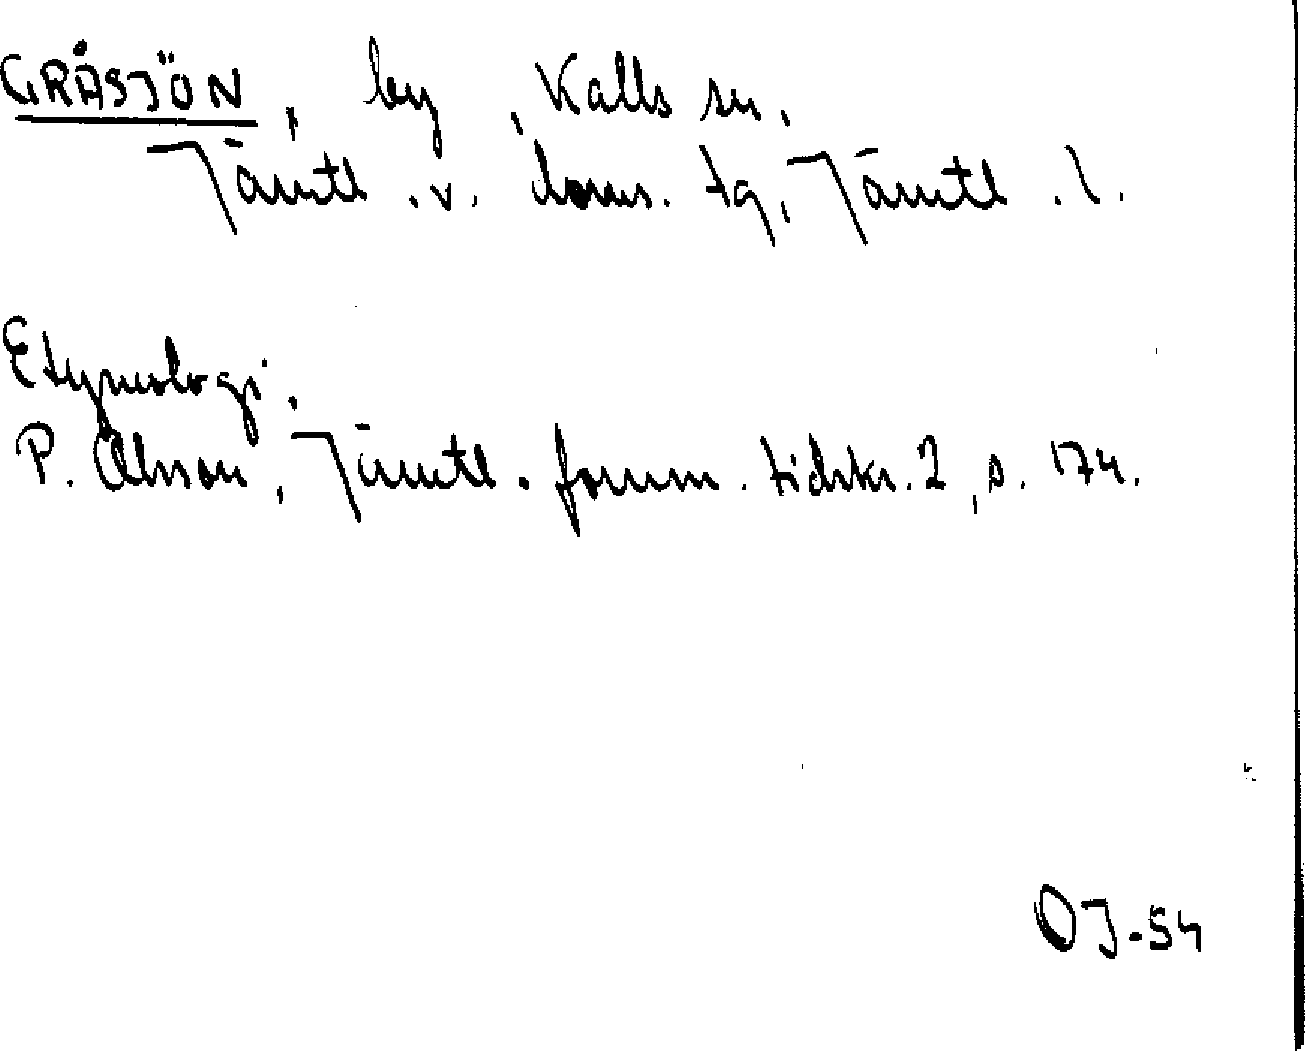 GRÅSJÖN, by, Kalls sn,
Jämtl. v. doms. tg, Jämtl. l.
Etymologi.
P. Olsson, Jämtl. fornm. tidskr. 2, s. 174.
OJ-54